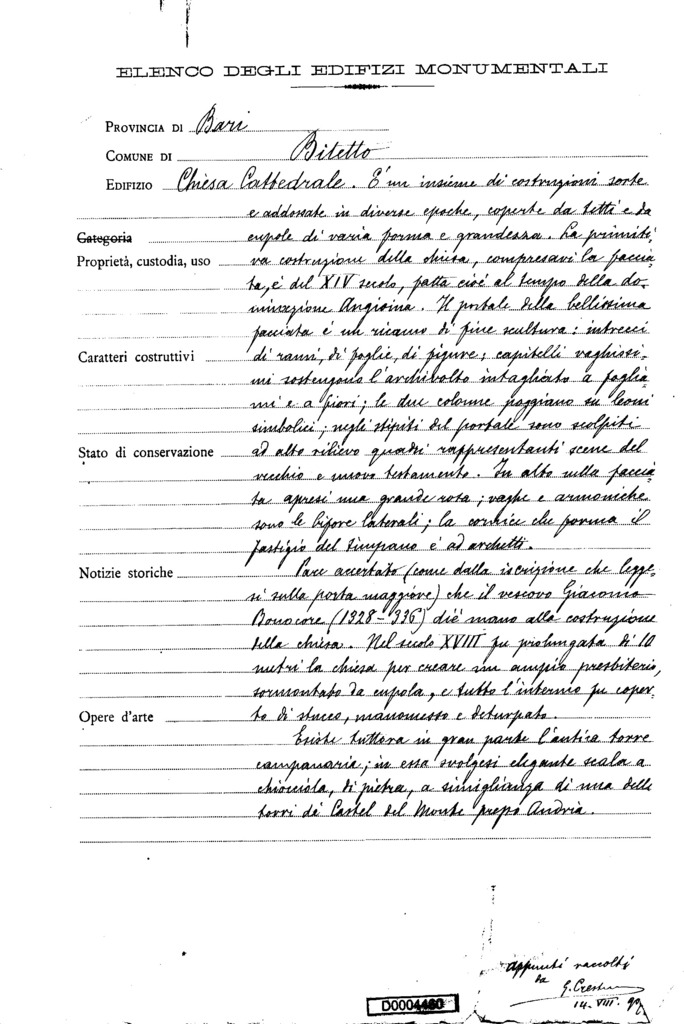 ELENCO DEGLI EDIFIZI MONUMENTALI
PROVINCIA DI Bari
COMUNE DI Bitetto
EDIFIZIO Chiesa Cattedrale. È un insieme di costruzioni sorte
e addossate in diverse epoche, coperte da tetti e da
Categoria cupole di varia forma e grandezza. La primiti-
Proprietà, custodia, uso va costruzione della chiesa, compresavi la faccia-
ta, è del XIV secolo, fatta cioè al tempo della do-
minazione Angioina. Il portale della bellissima
facciata è un ricamo di fine scultura: intrecci
Caratteri costruttivi di rami, di foglie, di figure; capitelli vaghissi-
mi sostengono l'archivolto intagliato a foglia-
mi e a fiori; le due colonne poggiano su leoni
simbolici; negli stipiti del portale sono scolpiti
Stato di conservazione ad alto rilievo quadri rappresentanti scene del
vecchio e nuovo testamento. In alto nella faccia-
ta apresi una grande rota; vaghe e armoniche
sono le bifore laterali; la cornice che forma il
fastigio del timpano è ad archetti.
Notizie storiche Pare accertato (come dalla iscrizione che legge-
si sulla porta maggiore) che il vescovo Giacomo
Bonocore (1328-336) diè mano alla costruzione
della chiesa. Nel secolo XVIII fu prolungata di 10
metri la chiesa per creare un ampio presbiterio,
sormontato da cupola, e tutto l'interno fu coper-
Opere d'arte to di stucco, manomesso e deturpato.
Esiste tuttora in gran parte l'antica torre
campanaria; in essa svolgesi elegante scala a
chiocciola, di pietra, a simiglianza di una delle
torri di Castel del Monte presso Andria.
appunti raccolti
da
14. VIII.
D0004460